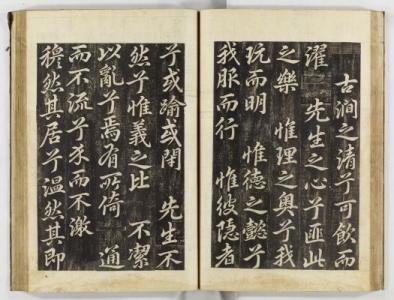 古澗之清兮可飲而
濯 先生之心兮匪此
之樂 惟理之奧兮我
玩而明 惟德之懿兮
我服而行 惟彼隱者
兮或踰或閉 先生不
然兮惟義之比 不潔
以亂兮焉有所倚 通
而不流兮而不激
穆然其居兮溫然其即